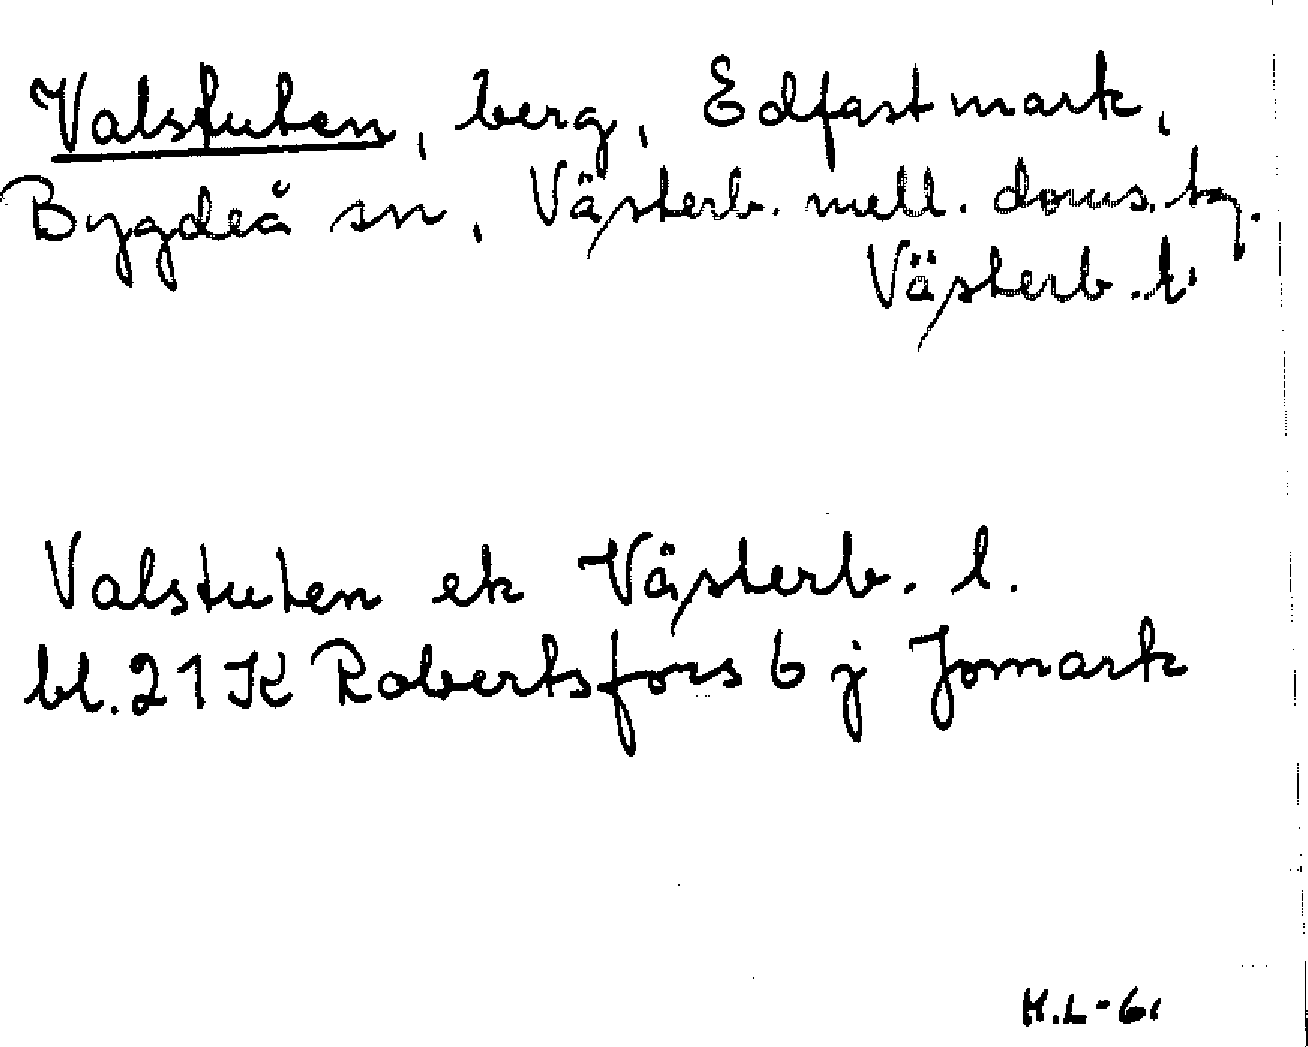 Valstuten, berg, Edfastmark,
Bygdeå sn, Västerb. mell. doms. tg.
Västerb. l.
Valstuten ek Västerb. l.
bl. 21K Robertsfors 6 j Jomark
H.L-61